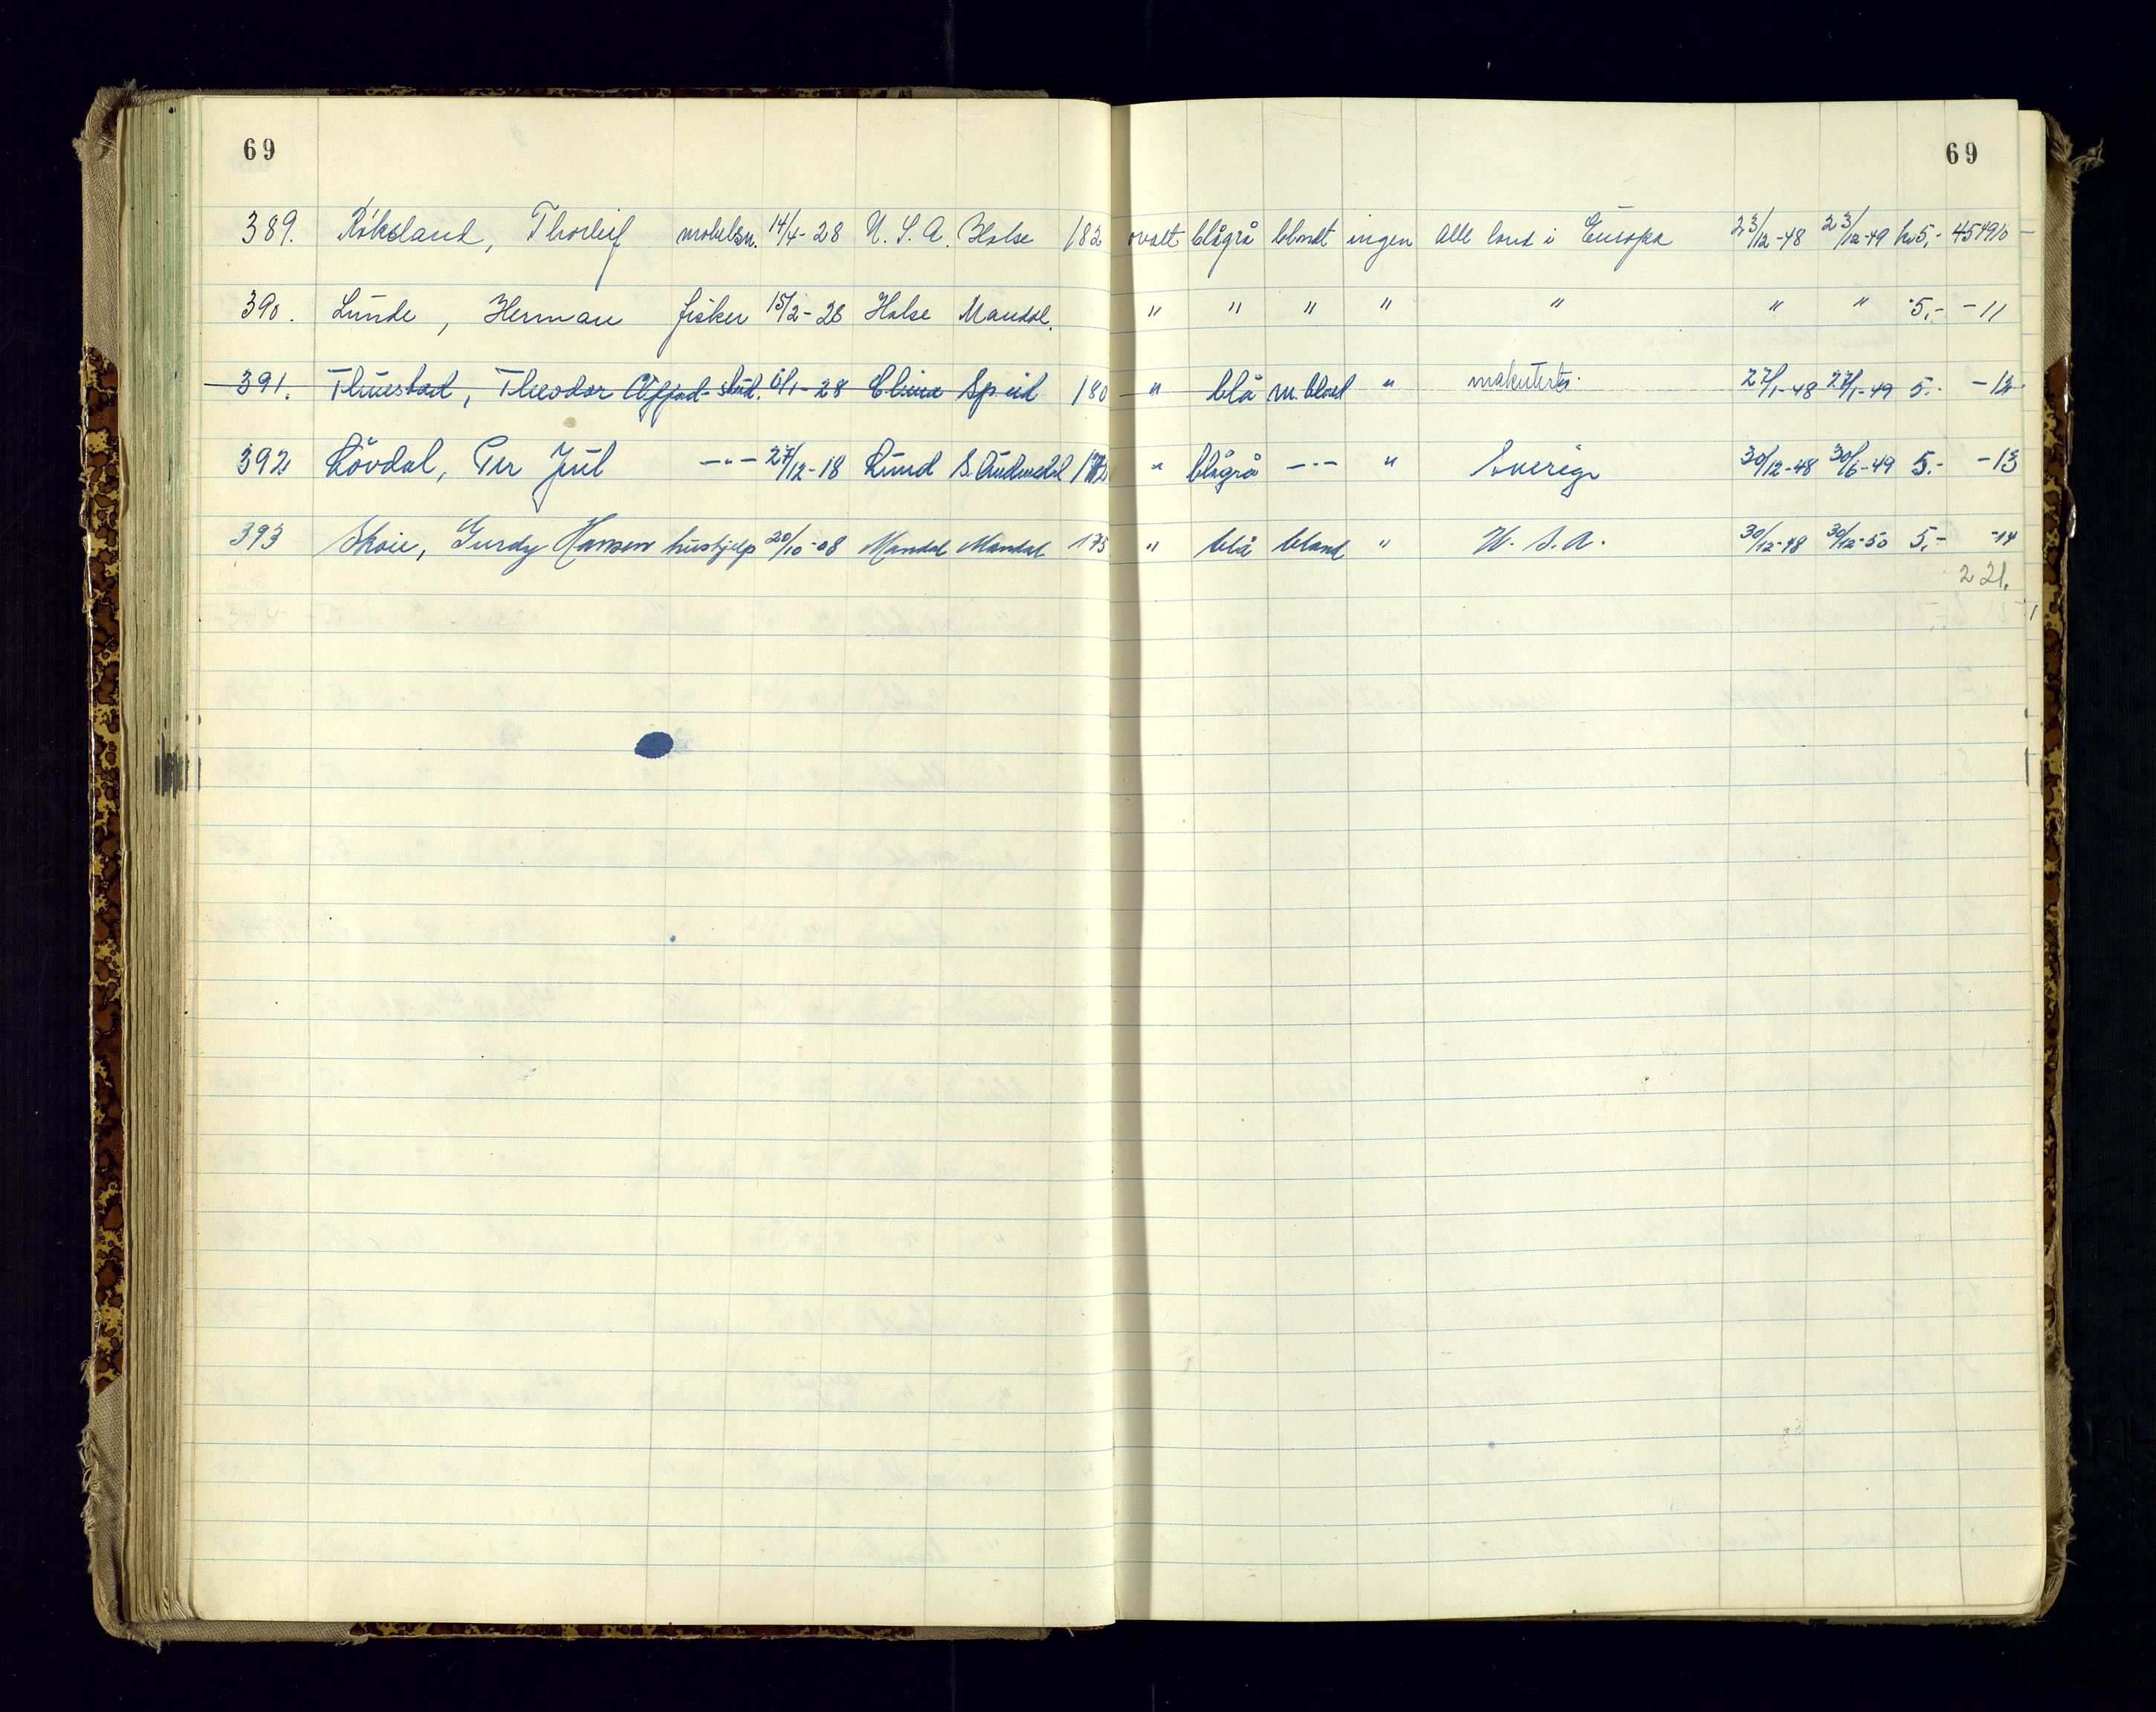 69 69
389. Röksland, Thorleif møbelsn. 14/4-28 U.S.A. Halse 182 ovalt blågrå blondt ingen Alle land i Europa 23/12-48 23/12-49 kr 5,- 454910
390. Lunde, Herman fisker 15/2-28 Halse Mandal. " " " " " " " 5,- -11
391. Thuestad, Theodor stud. 6/1-28 China 180 " blå m. blond " makulerts. 27/1-48 27/1-49 5.- -12
392 Lövdal, Per Jul -"- 27/12-18 Lund S. Audnedal 172 " blågrå -"- " Sverige 30/12-48 30/6-49 5.- -13
393 Skoie, Gurdy Hansen hushjelp 20/10-08 Mandal Mandal 175 " blå blond " U.S.A. 30/12-48 30/12-50 5,- -14
221.